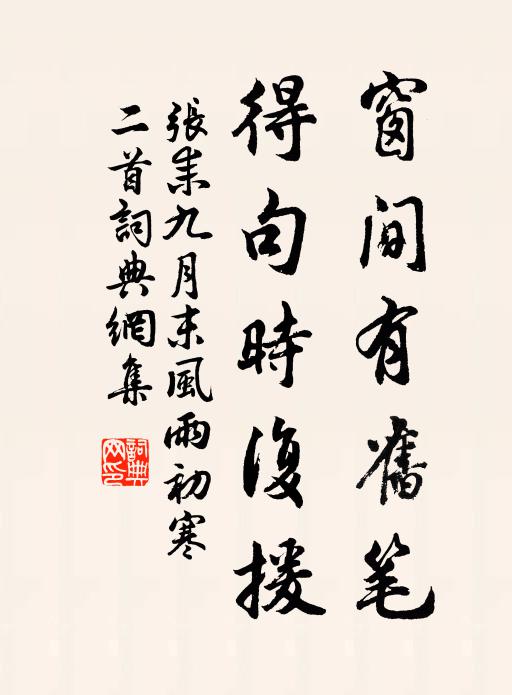 窗間有舊笔
得句時復援
張耒九月末風雨初寒
二首詞典網集
詞典网印